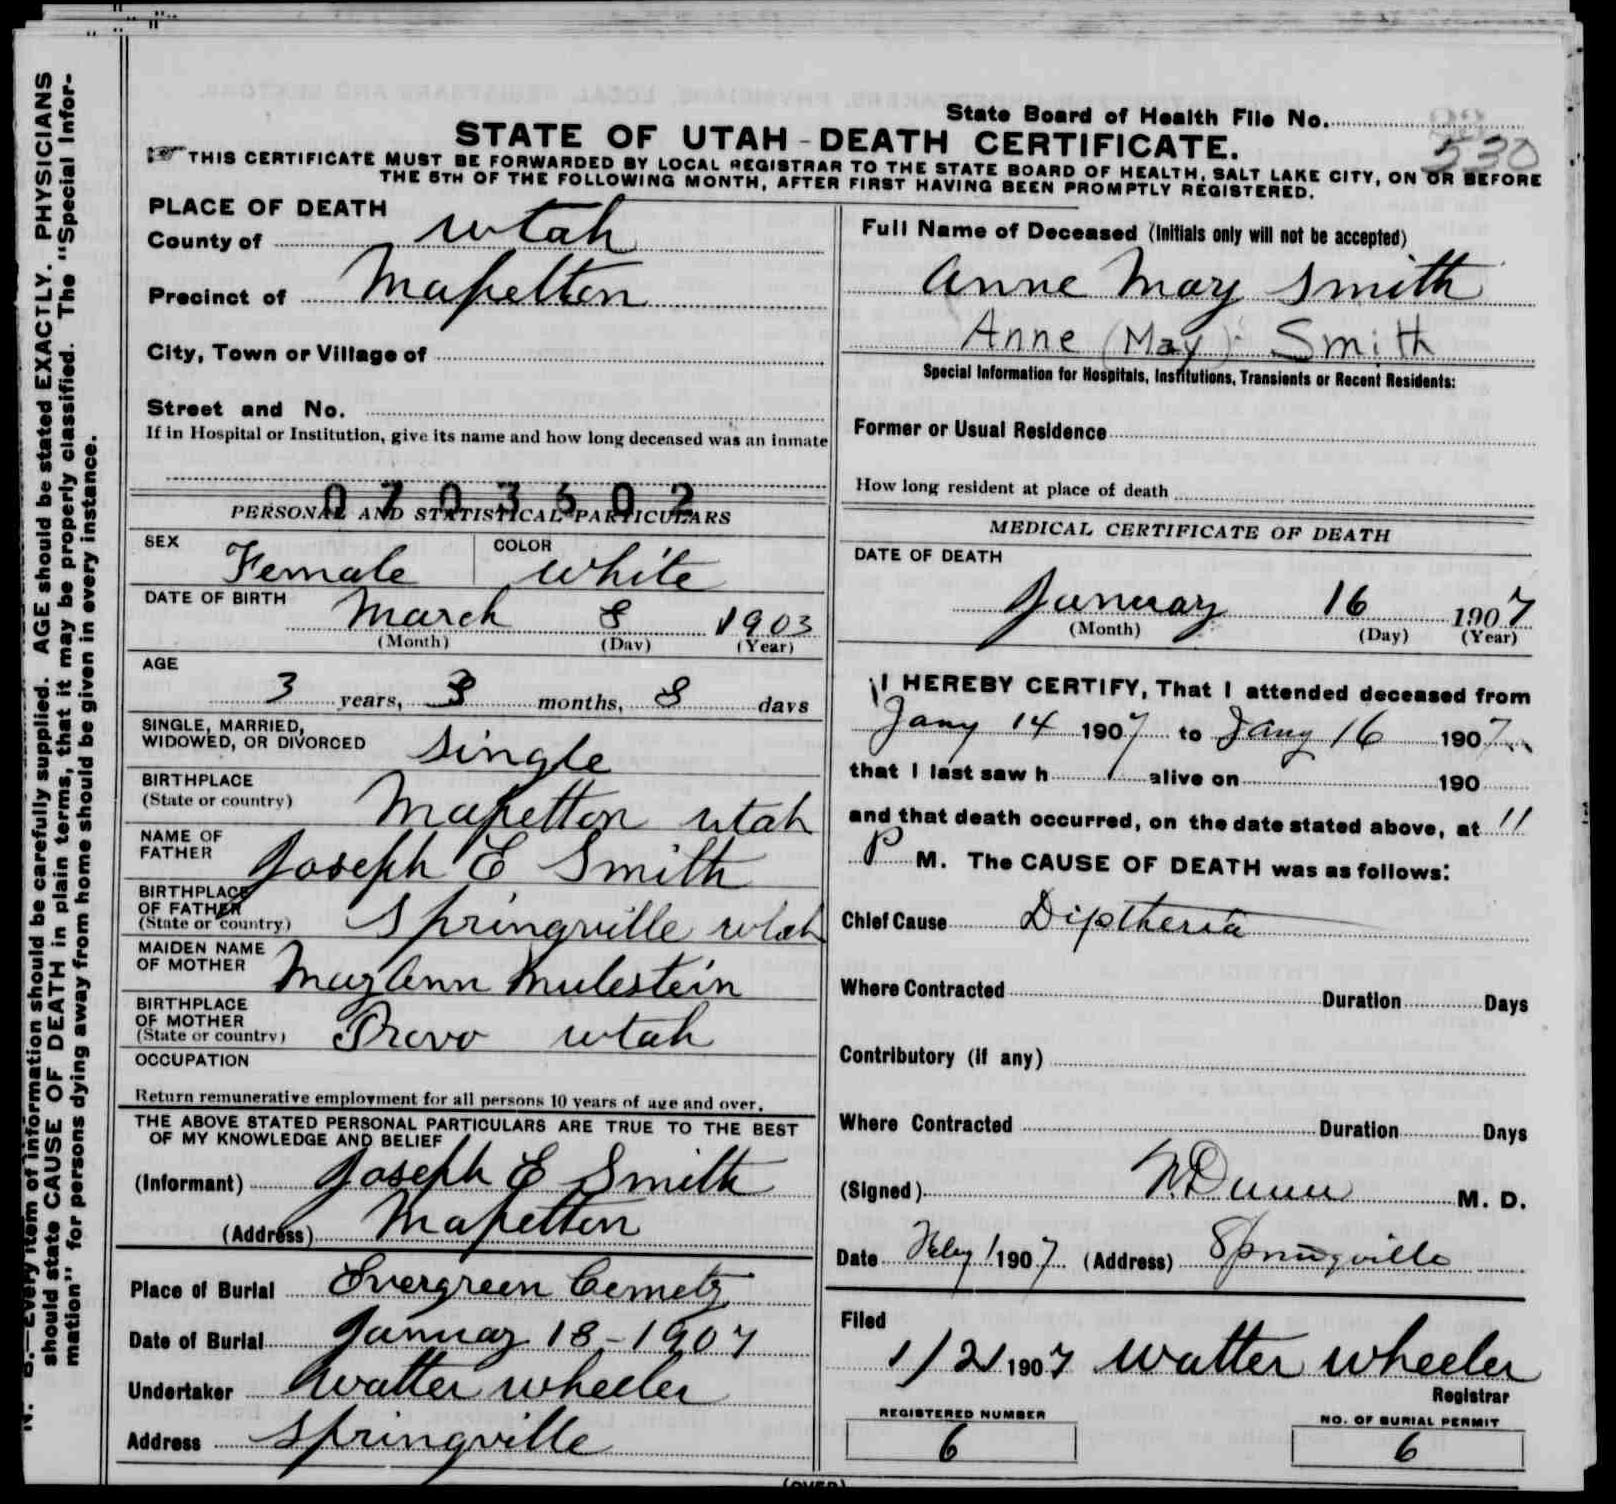 State Board of Health File No.
530
STATE OF UTAH - DEATH CERTIFICATE.
THIS CERTIFICATE MUST BE FORWARDED BY LOCAL REGISTRAR TO THE STATE BOARD OF HEALTH, SALT LAKE CITY, ON OR BEFORE
THE 5TH OF THE FOLLOWING MONTH, AFTER FIRST HAVING BEEN PROMPTLY REGISTERED.
PLACE OF DEATH
County of Utah
Precinct of Mapelton
City, Town or Village of
Street and No.
If in Hospital or Institution, give its name and how long deceased was an inmate
0703502
PERSONAL AND STATISTICAL PARTICULARS
SEX Female COLOR White
DATE OF BIRTH March 8 1903
(Month) (Day) (Year)
AGE
3 years, 3 months, 8 days
SINGLE, MARRIED,
WIDOWED, OR DIVORCED Single
BIRTHPLACE
(State or country) Mapelton Utah
NAME OF
FATHER Joseph E Smith
BIRTHPLACE
OF FATHER
(State or country) Springville Utah
MAIDEN NAME
OF MOTHER MaryAnn Mulestein
BIRTHPLACE
OF MOTHER
(State or country) Provo Utah
OCCUPATION
Return remunerative employment for all persons 10 years of age and over.
THE ABOVE STATED PERSONAL PARTICULARS ARE TRUE TO THE BEST
OF MY KNOWLEDGE AND BELIEF
(Informant) Joseph E Smith
(Address) Mapelton
Place of Burial Evergreen Cemety
Date of Burial January 18 - 1907
Undertaker Walter Wheeler
Address Springville
Full Name of Deceased (Initials only will not be accepted)
Anne May Smith
Anne (May) Smith
Special Information for Hospitals, Institutions, Transients or Recent Residents:
Former or Usual Residence
How long resident at place of death
MEDICAL CERTIFICATE OF DEATH
DATE OF DEATH
January 16 1907
(Month) (Day) (Year)
I HEREBY CERTIFY, That I attended deceased from
Jany 14 1907 to Jany 16 1907
that I last saw h alive on 190
and that death occurred, on the date stated above, at 11
P M. The CAUSE OF DEATH was as follows:
Chief Cause Diptheria
Where Contracted Duration Days
Contributory (if any)
Where Contracted Duration Days
(Signed) Dunn M. D.
Date Feby 1 1907 (Address) Springville
Filed
1/21 1907 Walter Wheeler
Registrar
REGISTERED NUMBER
6
NO. OF BURIAL PERMIT
6
(OVER)
N. B.—Every item of information should be carefully supplied. AGE should be stated EXACTLY. PHYSICIANS
should state CAUSE OF DEATH in plain terms, that it may be properly classified. The "Special Infor-
mation" for persons dying away from home should be given in every instance.